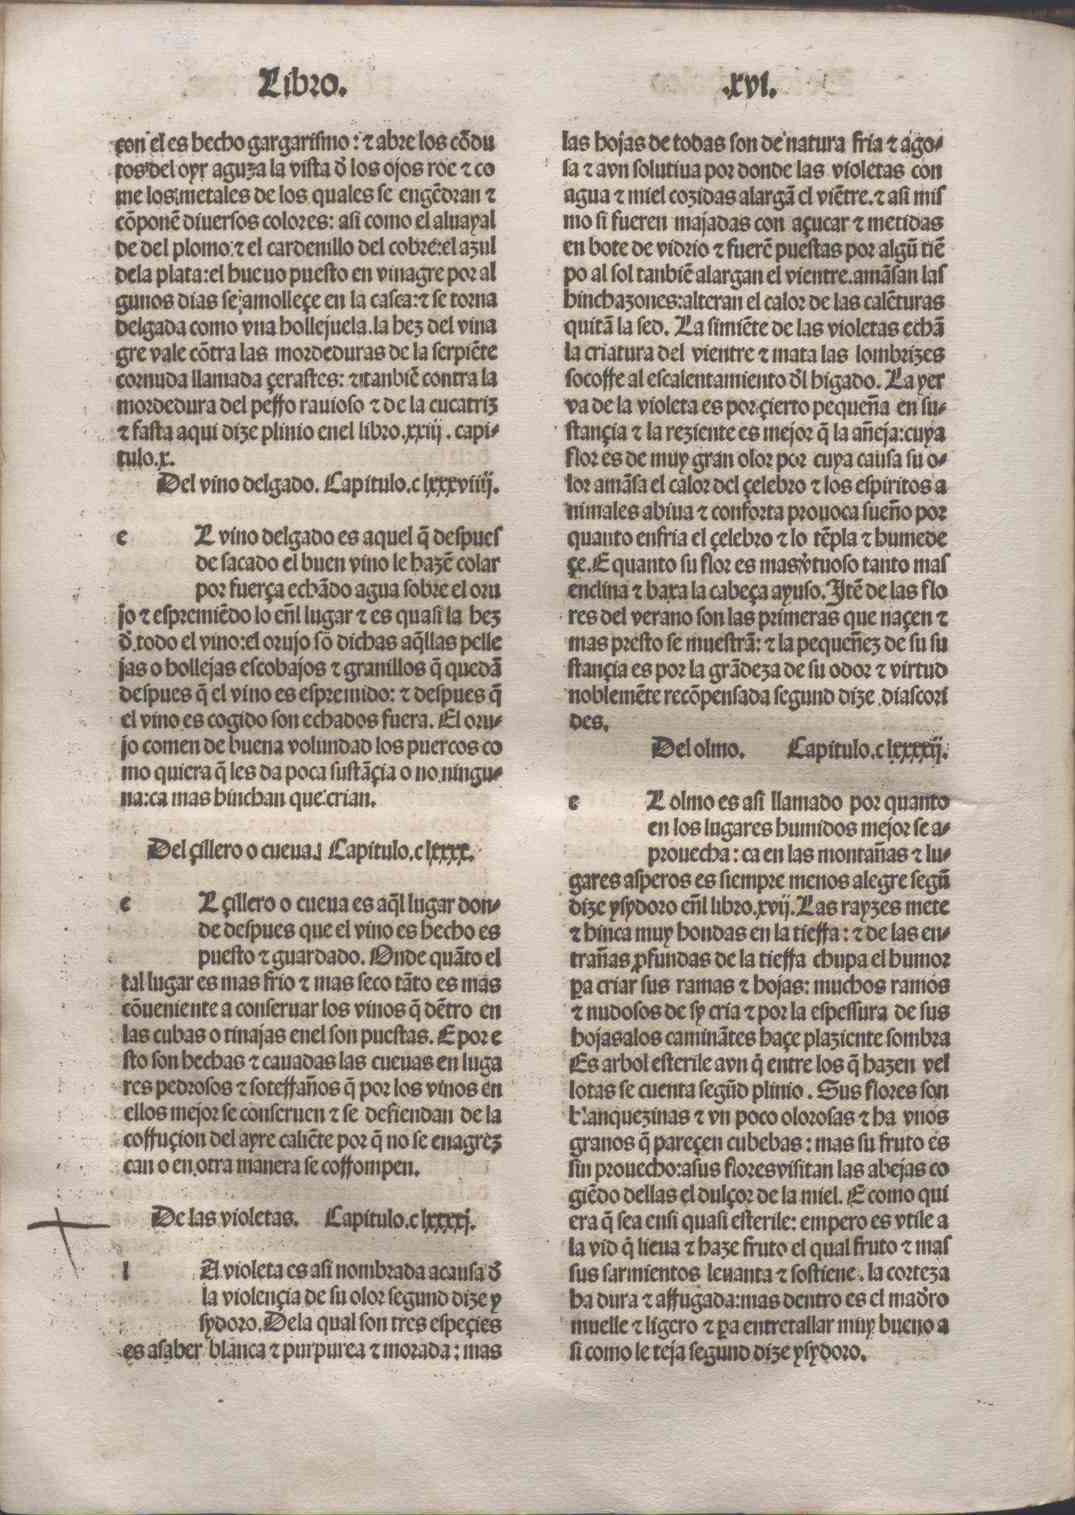 Libro.
.xvi.
con el es hecho gargarismo: ⁊ abre los cõdu
tos del oyr aguza la vista đ los ojos roe ⁊ co
me los metales de los quales se engẽdran ⁊
cõponẽ diuersos colores: asi como el aluayal
de del plomo: ⁊ el cardenillo del cobre: el azul
dela plata: el hueuo puesto en vinagre por al
gunos dias se amolleçe en la casca: ⁊ se torna
delgada como vna hollejuela. la hez del vina
gre vale cõtra las mordeduras de la serpiẽte
cornuda llamada çerastes: ⁊ tanbiẽ contra la
mordedura del perro rauioso ⁊ de la cucatriz
⁊ fasta aqui dize plinio enel libro .xxiij. capi-
tulo .x.
Del vino delgado. Capitulo. clxxxviiij.
e L vino delgado es aquel q̃ despues
de sacado el buen vino le hazẽ colar
por fuerça echãdo agua sobre el oru
jo ⁊ espremiẽdo lo eñl lugar ⁊ es quasi la hez
đ todo el vino: el orujo sõ dichas aq̃llas pelle
jas o hollejas escobajos ⁊ granillos q̃ quedã
despues q̃ el vino es espremido: ⁊ despues q̃
el vino es cogido son echados fuera. El oru-
jo comen de buena volundad los puercos co
mo quiera q̃ les da poca sustãçia o no ningu-
na: ca mas hinchan que crian.
Del çillero o cueua. Capitulo. clxxxx.
e L çillero o cueua es aq̃l lugar don-
de despues que el vino es hecho es
puesto ⁊ guardado. Onde quãto el
tal lugar es mas frio ⁊ mas seco tãto es mas
cõueniente a conseruar los vinos q̃ dẽtro en
las cubas o tinajas enel son puestas. E por e
sto son hechas ⁊ cauadas las cueuas en luga
res pedrosos ⁊ soterraños q̃ por los vinos en
ellos mejor se conseruen ⁊ se defiendan de la
corruçion del ayre caliẽte por q̃ no se enagrez
can o en otra manera se corrompen.
De las violetas. Capitulo. clxxxxj.
l A violeta es asi nombrada a causa đ
la violençia de su olor segund dize y
sydoro. Dela qual son tres espeçies
es asaber blanca ⁊ purpurea ⁊ morada: mas
las hojas de todas son de natura fria ⁊ ago-
sa ⁊ avn solutiua por donde las violetas con
agua ⁊ miel cozidas alargã el viẽtre. ⁊ asi mis
mo si fueren majadas con açucar ⁊ metidas
en bote de vidrio ⁊ fuerẽ puestas por algũ tiẽ
po al sol tanbiẽ alargan el vientre. amãsan las
hinchazones: alteran el calor de las calẽturas
quitã la sed. La simiẽte de las violetas echã
la criatura del vientre ⁊ mata las lombrizes
socorre al escalentamiento đl higado. La yer
va de la violeta es por çierto pequeña en su-
stançia ⁊ la reziente es mejor q̃ la añeja: cuya
flor es de muy gran olor por cuya causa su o-
lor amãsa el calor del çelebro ⁊ los espiritos a
nimales abiua ⁊ conforta prouoca sueño por
quanto enfria el çelebro ⁊ lo tẽpla ⁊ humede
çe. E quanto su flor es mas v̉tuoso tanto mas
enclina ⁊ baxa la cabeça ayuso. Itẽ de las flo
res del verano son las primeras que naçen ⁊
mas presto se muestrã: ⁊ la pequeñez de su su
stançia es por la grãdeza de su odor ⁊ virtud
noblemẽte recõpensada segund dize diascori
des.
Del olmo. Capitulo. clxxxxij.
e L olmo es asi llamado por quanto
en los lugares humidos mejor se a-
prouecha: ca en las montañas ⁊ lu-
gares asperos es siempre menos alegre segũ
dize ysydoro eñl libro .xvij. Las rayzes mete
⁊ hinca muy hondas en la tierra: ⁊ de las en-
trañas ꝓfundas de la tierra chupa el humor
ꝑa criar sus ramas ⁊ hojas: muchos ramos
⁊ nudosos de sy cria ⁊ por la espessura de sus
hojas a los caminãtes haçe plaziente sombra
Es arbol esterile avn q̃ entre los q̃ hazen vel
lotas se cuenta segũd plinio. Sus flores son
blanquezinas ⁊ vn poco olorosas ⁊ ha vnos
granos q̃ pareçen cubebas: mas su fruto es
sin prouecho: a sus flores visitan las abejas co
giẽdo dellas el dulçor de la miel. E como qui
era q̃ sea ensi quasi esterile: empero es vtile a
la vid q̃ lieua ⁊ haze fruto el qual fruto ⁊ mas
sus sarmientos leuanta ⁊ sostiene. la corteza
ha dura ⁊ arrugada: mas dentro es el mad̉ro
muelle ⁊ ligero ⁊ ꝑa entretallar muy bueno a
si como le teja segund dize ysydoro.